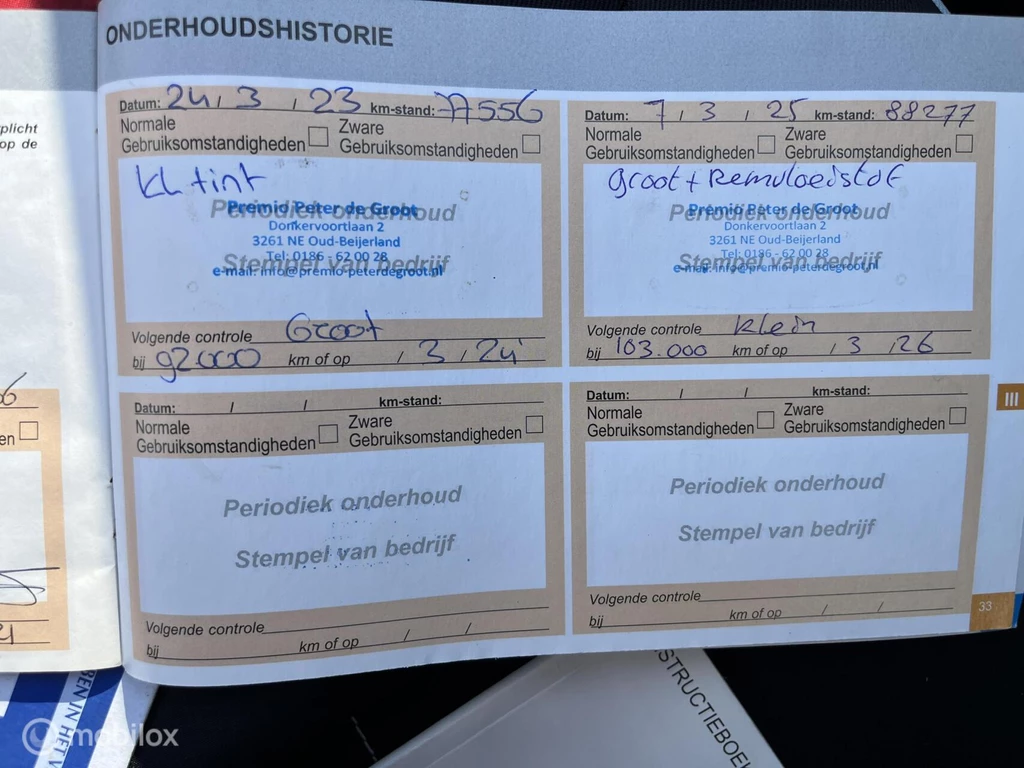 ONDERHOUDSHISTORIE
plicht
op de
Datum: 24 / 3 / 23 km-stand: 77556
Normale
Gebruiksomstandigheden
Zware
Gebruiksomstandigheden
Periodiek onderhoud
Premio Peter de Groot
Donkervoortlaan 2
3261 NE Oud-Beijerland
Tel: 0186 - 62 00 28
Stempel van bedrijf
e-mail: info@premio-peterdegroot.nl
Volgende controle Groot
bij 92000 km of op / 3 / 24
Datum: 7 / 3 / 25 km-stand: 88277
Normale
Gebruiksomstandigheden
Zware
Gebruiksomstandigheden
groot + Remvloeistof
Periodiek onderhoud
Premio Peter de Groot
Donkervoortlaan 2
3261 NE Oud-Beijerland
Tel: 0186 - 62 00 28
Stempel van bedrijf
e-mail: info@premio-peterdegroot.nl
Volgende controle klein
bij 103.000 km of op / 3 / 26
Datum: / / km-stand:
Normale
Gebruiksomstandigheden
Zware
Gebruiksomstandigheden
Periodiek onderhoud
Stempel van bedrijf
Volgende controle
bij km of op / /
Datum: / / km-stand:
Normale
Gebruiksomstandigheden
Zware
Gebruiksomstandigheden
Periodiek onderhoud
Stempel van bedrijf
Volgende controle
bij km of op / /
III
33
en
STRUCTIEBOEK
BEN IN HET
mobilox